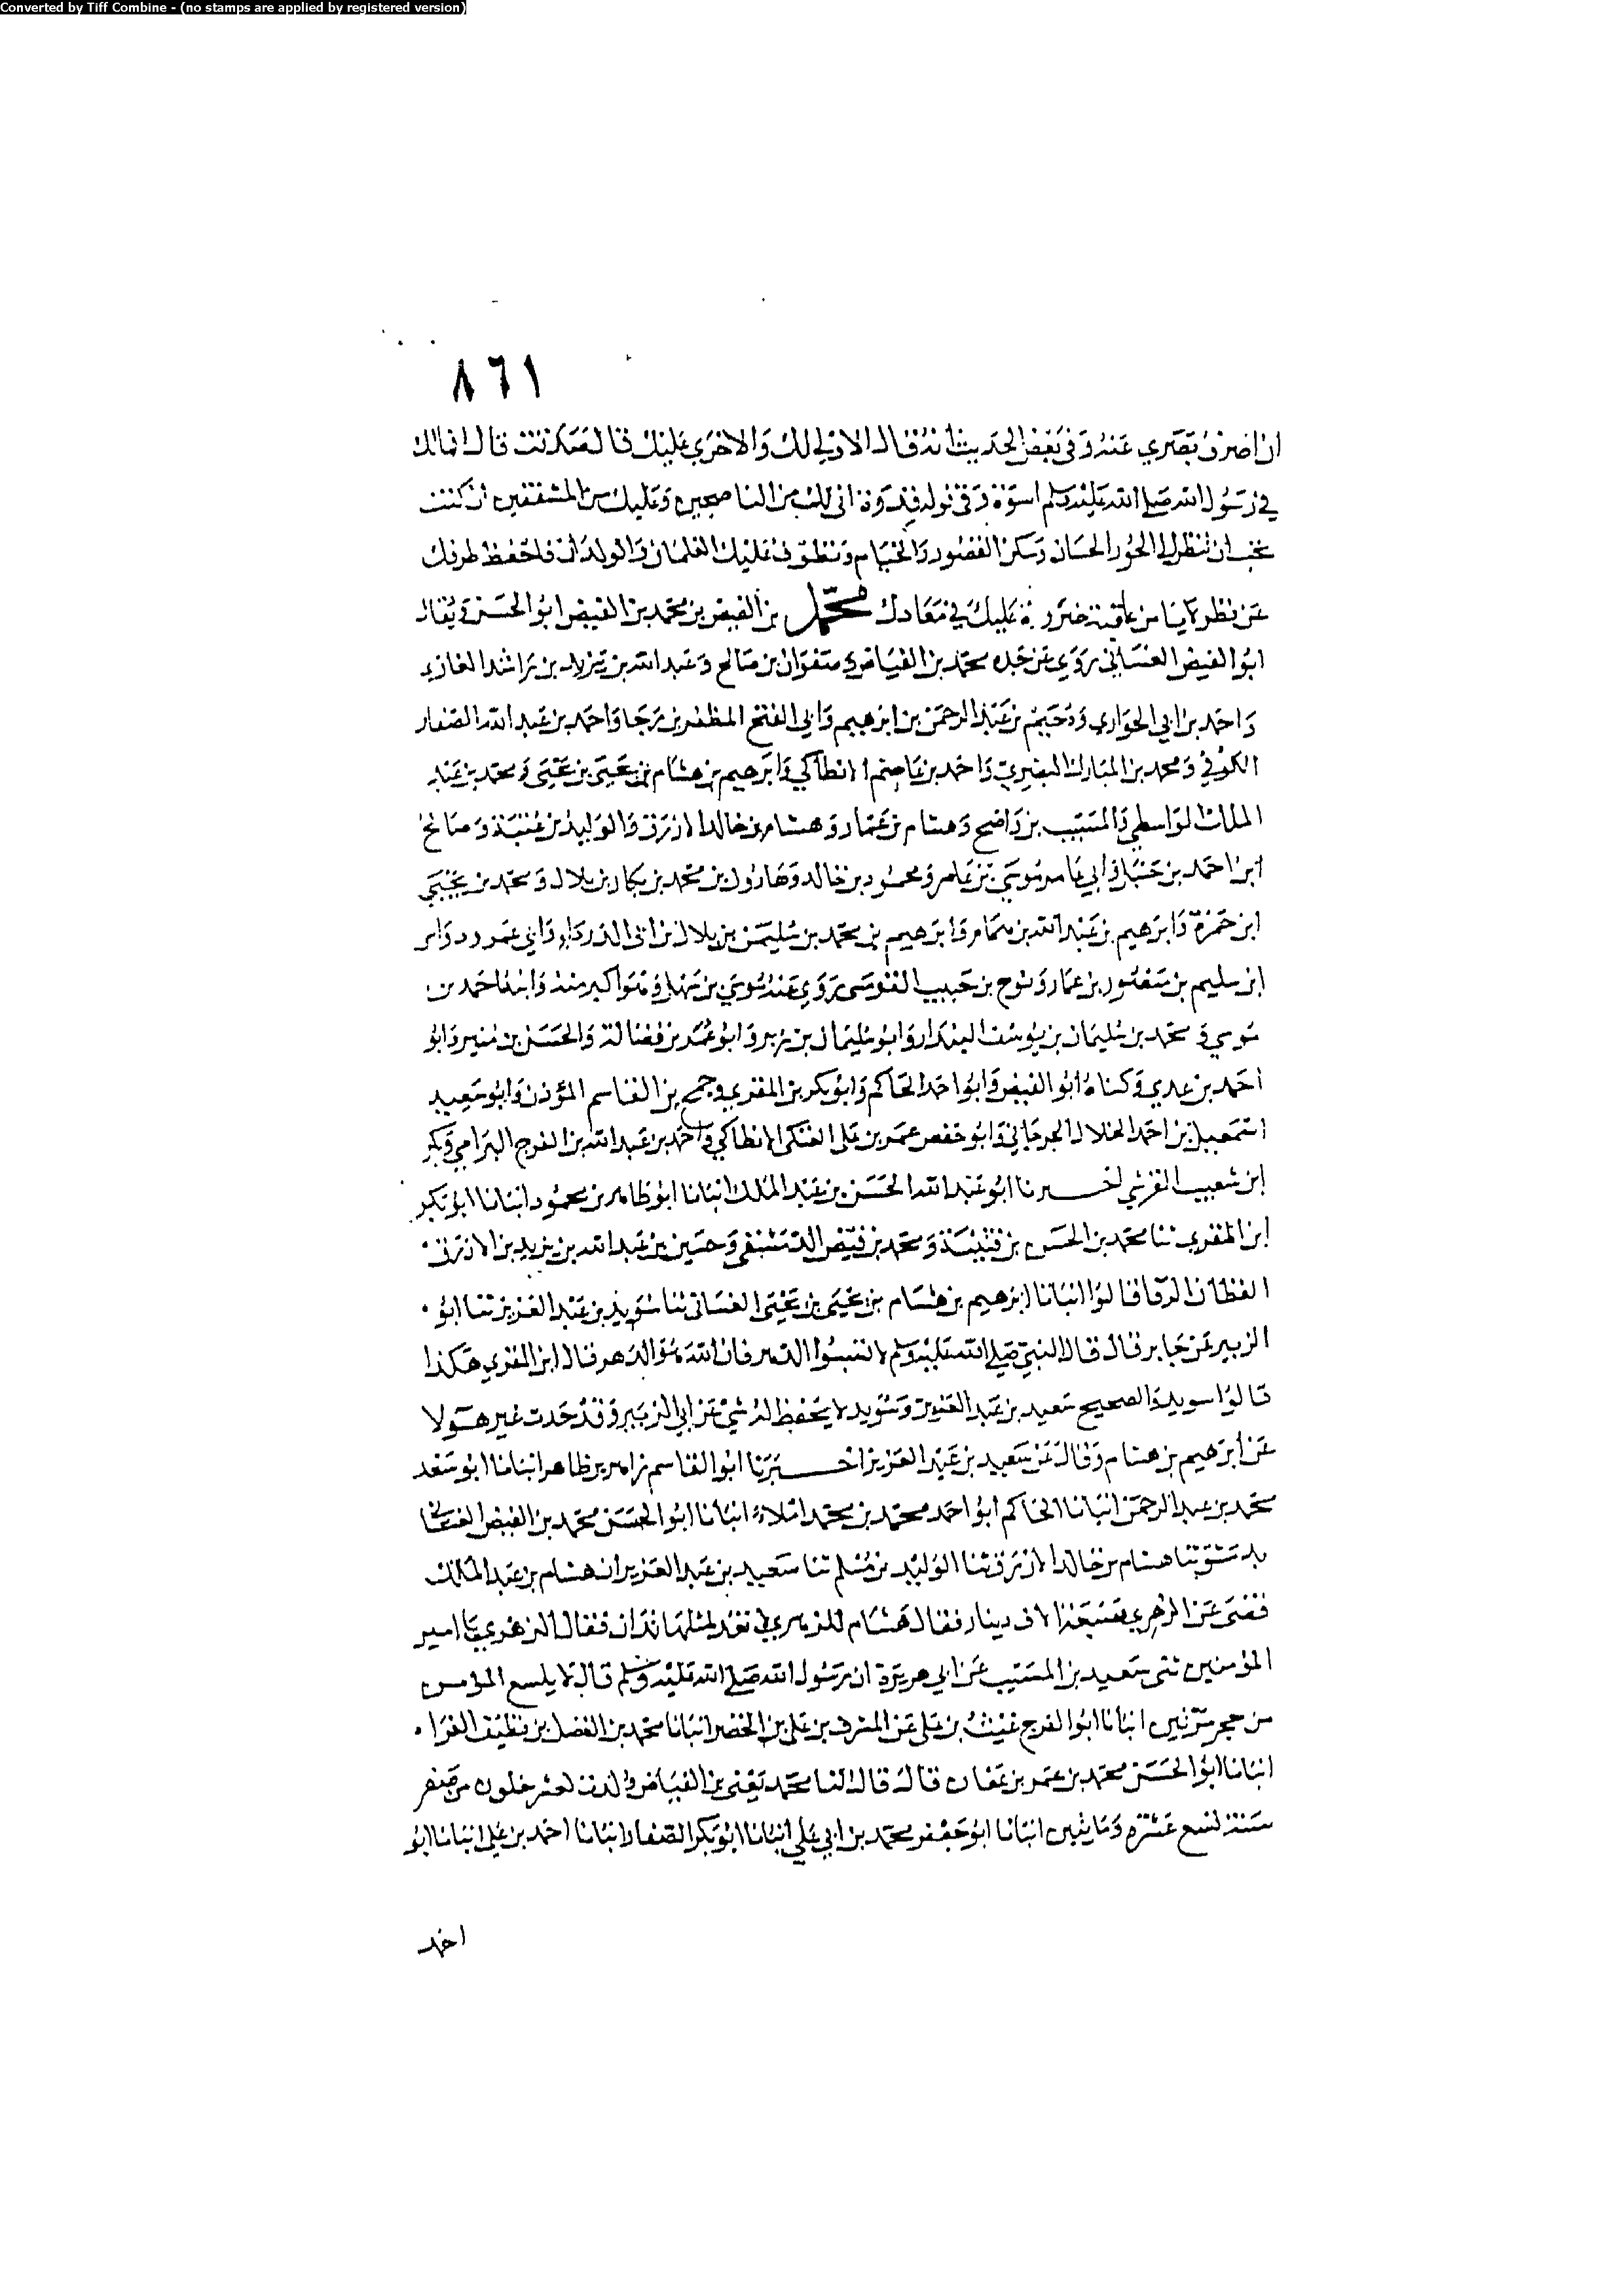 Converted by Tiff Combine - (no stamps are applied by registered version)
٨٦١
ان اصرف بصري عنه وفى بعض الحديث انه قال الاولى لك والاخرى عليك قال قال امالك
في رسول الله صلى الله عليه وسلم اسوة وفى قوله قدوة انى لك من الناصحين وعليك من المشفقين ان كنت
تحب ان تنظر الى الحور الحسان وتسكن القصور والخيام وتطوف عليك الغلمان والولدان فاحفظ طرفك
عن نظر عليك في معادك محمد بن الفيض بن محمد بن الفيض ابو الحسن ويقال
ابو الفيض الغساني روى عن جده محمد بن الفياض و صفوان بن صالح وعبد الله بن يزيد بن راشد الغازي
واحمد بن ابي الحواري ودحيم بن عبد الرحمن بن ابرهيم وابي الفتح المظفر بن رجا واحمد بن عبد الله الصفار
الكوفي ومحمد بن المبارك البصري واحمد بن عاصم الانطاكي وابرهيم بن هشام بن يحيى بن يحيى ومحمد بن عبد
الملك الواسطي والمسيب بن واضح وهشام بن عمار وهشام بن خالد الازرق والوليد بن عتبة وصالح
ابن احمد بن حنبل وابي عامر موسى بن عامر ومحمود بن خالد وهارون بن محمد بن بكار بن بلال ومحمد بن يحيى
ابن حمزة وابرهيم بن عبد الله بن همام وابرهيم بن محمد بن سليمن بن بلال بن ابى الدرداء وابي عمرو
ابن سليم بن منصور بن عمار ونوح بن حبيب القومسى روى عنه موسى بن سهل وهو اكبر منه وابنه احمد بن
موسى ومحمد بن سليمان بن يوسف البندار وابو سليمان بن زبر وابو عمر بن فضالة والحسن بن منير وابو
احمد بن عدي وكناه ابو الفيض وابو احمد الحاكم وابو بكر بن المقري وجمح بن القاسم المؤذن وابو سعيد
اسمعيل بن احمد الخلال الجرجاني وابو حفص عمر بن علي العتكى الانطاكي واحمد بن عبد الله بن الفرج البرامي وبكر
ابن شعيب القرشي اخبرنا ابو عبد الله الحسن بن عبد الملك انبانا ابو طاهر بن محمود انبانا ابو بكر
ابن المقري ثنا محمد بن الحسن بن قتيبة ومحمد بن فيض الدمشقي وحسين بن عبد الله بن يزيد بن الازرق
القطان الرقا قالوا انبانا ابرهيم بن هشام بن يحيى بن يحيى الغسانى ثنا سويد بن عبد العزيز ثنا ابو
الزبير عن جابر قال قال النبي صلى الله عليه وسلم لا تسبوا الدهر فان الله هو الدهر قال ابن المقري هكذا
قالوا سويد والصحيح سعيد بن عبد العزيز وسويد لا يحفظ له شي عن ابي الزبير وقد حدث غير هولا
عن ابرهيم بن هشام وقال عن سعيد بن عبد العزيز اخبرنا ابو القاسم زاهر بن طاهر انبانا ابو سعد
محمد بن عبد الرحمن انبانا الحاكم ابو احمد محمد بن محمد املاء انبانا ابو الحسن محمد بن الفيض الغساني
بدمشق ثنا هشام بن خالد الازرق ثنا الوليد بن مسلم ثنا سعيد بن عبد العزيز ان هشام بن عبد الملك
قضى عن الزهري سبعة الاف دينار فقال هشام للزهري لا تعد لمثلها تدان فقال الزهري يا امير
المؤمنين ثنى سعيد بن المسيب عن ابي هريرة ان رسول الله صلى الله عليه وسلم قال لا يلسع المؤمن
من جحر مرتين انبانا ابو الفرج غيث بن علي عن المشرف بن علي بن الخضر انبانا محمد بن الفضل بن نظيف الفرا
انبانا ابو الحسن محمد بن عمر بن عفان قال قال لنا محمد يعنى بن الفياض ولدت لعشر خلون من صفر
سنة تسع عشرة ومايتين انبانا ابو جعفر محمد بن ابي علي انبانا ابو بكر الصفار انبانا احمد بن علي انبانا ابو
احمد